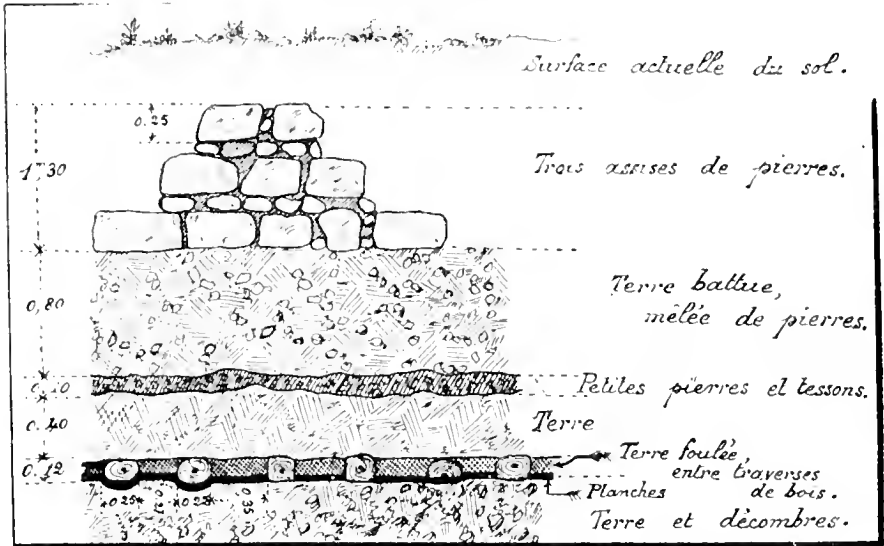 Surface actuelle du sol.
0.25
1,30
Trois assises de pierres.
0,80
Terre battue,
mêlée de pierres.
Petites pierres et tessons.
0.40
Terre
0.12
Terre foulée,
entre traverses
de bois.
Planches
0.25
0.25
0.35
Terre et décombres.